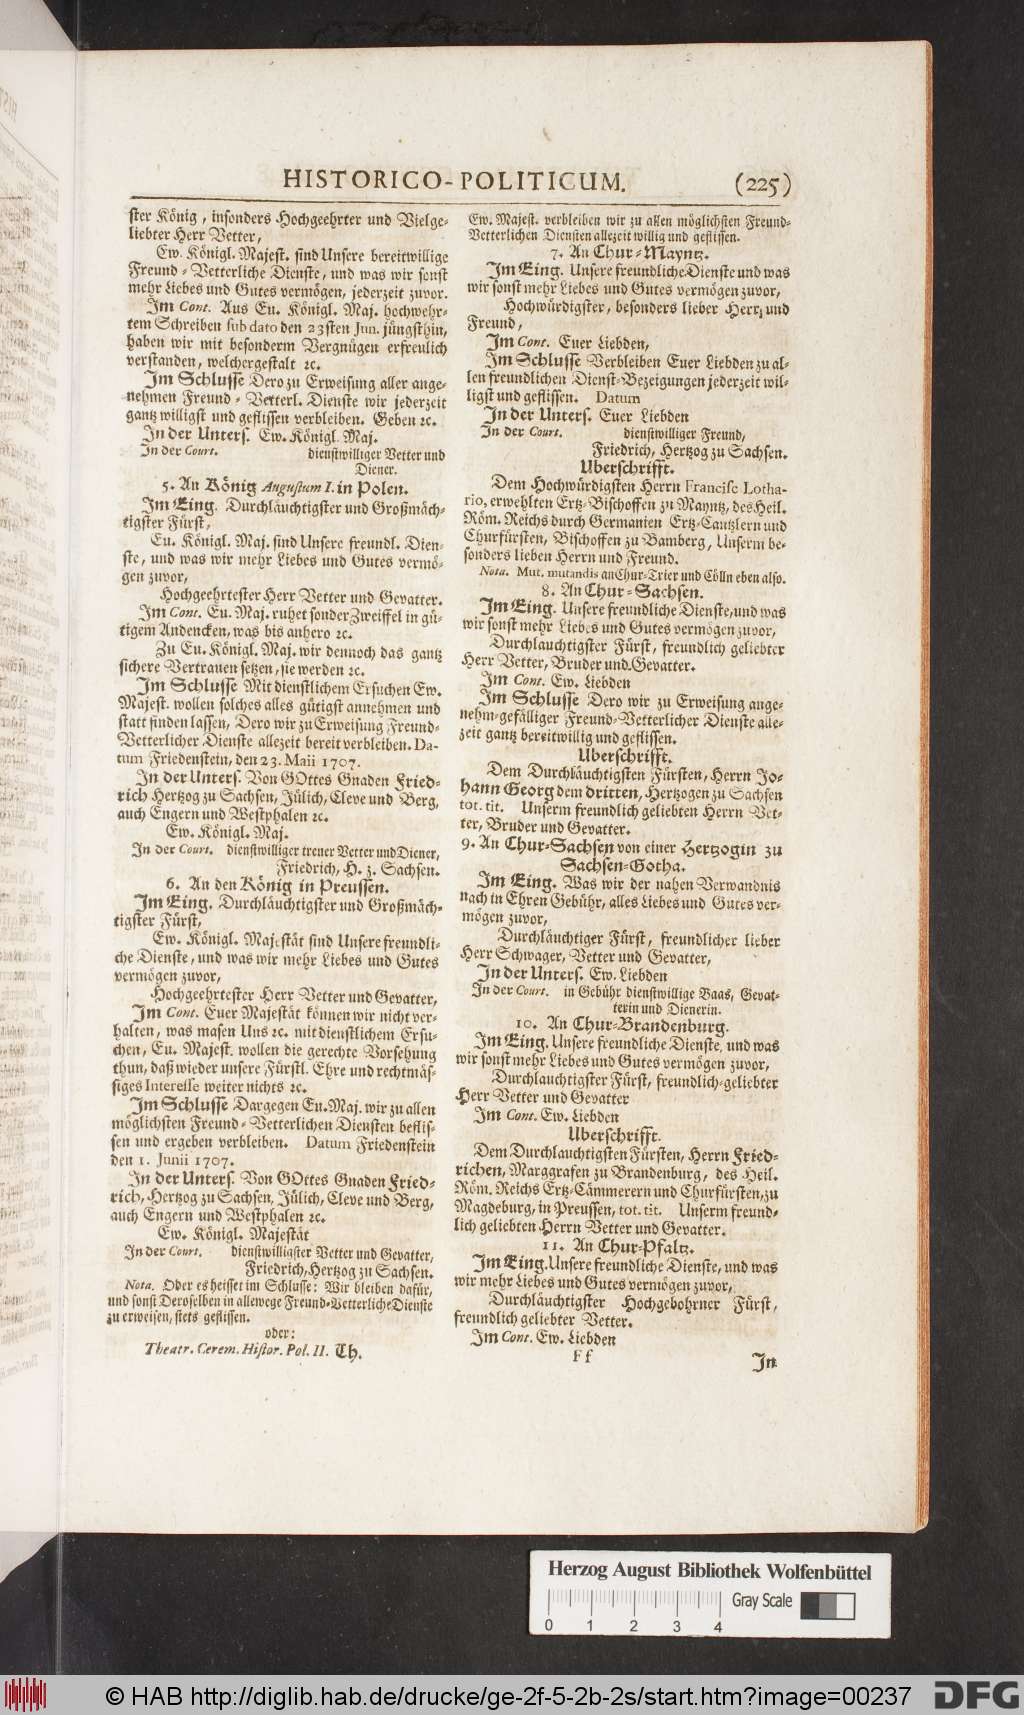 HISTORICO-POLITICUM. (225)
ster König, insonders Hochgeehrter und Vielge-
liebter Herr Vetter,
Ew. Königl. Majest. sind Unsere bereitwillige
Freund-Vetterliche Dienste, und was wir sonst
mehr Liebes und Gutes vermögen, jederzeit zuvor.
Im Cont. Aus Eu. Königl. Maj. hochwehr-
tem Schreiben sub dato den 23sten Jun. jüngsthin,
haben wir mit besonderm Vergnügen erfreulich
verstanden, welchergestalt ꝛc.
Im Schlusse Dero zu Erweisung aller ange-
nehmen Freund-Vetterl. Dienste wir jederzeit
gantz willigst und geflissen verbleiben. Geben ꝛc.
In der Unters. Ew. Königl. Maj.
In der Court. dienstwilliger Vetter und
Diener.
5. An König Augustum I. in Polen.
Im Eing. Durchläuchtigster und Großmäch-
tigster Fürst,
Eu. Königl. Maj. sind Unsere freundl. Dien-
ste, und was wir mehr Liebes und Gutes vermö-
gen zuvor,
Hochgeehrtester Herr Vetter und Gevatter.
Im Cont. Eu. Maj. ruhet sonder Zweiffel in gü-
tigem Andencken, was bis anhero ꝛc.
Zu Eu. Königl. Maj. wir dennoch das gantz
sichere Vertrauen setzen, sie werden ꝛc.
Im Schlusse Mit dienstlichem Ersuchen Ew.
Majest. wollen solches alles gütigst annehmen und
statt finden lassen, Dero wir zu Erweisung Freund-
Vetterlicher Dienste allezeit bereit verbleiben. Da-
tum Friedenstein, den 23. Maii 1707.
In der Unters. Von GOttes Gnaden Fried-
rich Hertzog zu Sachsen, Jülich, Cleve und Berg,
auch Engern und Westphalen ꝛc.
Ew. Königl. Maj.
In der Court. dienstwilliger treuer Vetter und Diener,
Friedrich, H. z. Sachsen.
6. An den König in Preussen.
Im Eing. Durchläuchtigster und Großmäch-
tigster Fürst,
Ew. Königl. Majestät sind Unsere freundli-
che Dienste, und was wir mehr Liebes und Gutes
vermögen zuvor,
Hochgeehrtester Herr Vetter und Gevatter,
Im Cont. Euer Majestät können wir nicht ver-
halten, was masen Uns ꝛc. mit dienstlichem Ersu-
chen, Eu. Majest. wollen die gerechte Vorsehung
thun, daß wieder unsere Fürstl. Ehre und rechtmäs-
siges Interesse weiter nichts ꝛc.
Im Schlusse Dargegen Eu. Maj. wir zu allen
möglichsten Freund-Vetterlichen Diensten beflis-
sen und ergeben verbleiben. Datum Friedenstein
den 1. Junii 1707.
In der Unters. Von GOttes Gnaden Fried-
rich, Hertzog zu Sachsen, Jülich, Cleve und Berg,
auch Engern und Westphalen ꝛc.
Ew. Königl. Majestät
In der Court. dienstwilligster Vetter und Gevatter,
Friedrich, Hertzog zu Sachsen.
Nota. Oder es heisset im Schlusse: Wir bleiben dafür,
und sonst Deroselben in allewege Freund-Vetterliche Dienste
zu erweisen, stets geflissen.
oder:
Theatr. Cerem. Histor. Pol. II. Th.
Ew. Majest. verbleiben wir zu allen möglichsten Freund-
Vetterlichen Diensten allezeit willig und geflissen.
7. An Chur-Mayntz.
Im Eing. Unsere freundliche Dienste und was
wir sonst mehr Liebes und Gutes vermögen zuvor,
Hochwürdigster, besonders lieber Herr, und
Freund,
Im Cont. Euer Liebden,
Im Schlusse Verbleiben Euer Liebden zu al-
len freundlichen Dienst-Bezeigungen jederzeit wil-
ligst und geflissen. Datum
In der Unters. Euer Liebden
In der Court. dienstwilliger Freund,
Friedrich, Hertzog zu Sachsen.
Uberschrifft.
Dem Hochwürdigsten Herrn Francisc Lotha-
rio, erwehlten Ertz-Bischoffen zu Mayntz, des Heil.
Röm. Reichs durch Germanien Ertz-Cantzlern und
Churfürsten, Bischoffen zu Bamberg, Unserm be-
sonders lieben Herrn und Freund.
Nota. Mut. mutandis an Chur-Trier und Cölln eben also.
8. An Chur-Sachsen.
Im Eing. Unsere freundliche Dienste, und was
wir sonst mehr Liebes und Gutes vermögen zuvor,
Durchlauchtigster Fürst, freundlich geliebter
Herr Vetter, Bruder und Gevatter.
Im Cont. Ew. Liebden
Im Schlusse Dero wir zu Erweisung ange-
nehm-gefälliger Freund-Vetterlicher Dienste alle-
zeit gantz bereitwillig und geflissen.
Uberschrifft.
Dem Durchläuchtigsten Fürsten, Herrn Jo-
hann Georg dem dritten, Hertzogen zu Sachsen
tot. tit. Unserm freundlich geliebten Herrn Vet-
ter, Bruder und Gevatter.
9. An Chur-Sachsen von einer Hertzogin zu
Sachsen-Gotha.
Im Eing. Was wir der nahen Verwandnis
nach in Ehren Gebühr, alles Liebes und Gutes ver-
mögen zuvor,
Durchläuchtiger Fürst, freundlicher lieber
Herr Schwager, Vetter und Gevatter,
In der Unters. Ew. Liebden
In der Court. in Gebühr dienstwillige Baas, Gevat-
terin und Dienerin.
10. An Chur-Brandenburg.
Im Eing. Unsere freundliche Dienste, und was
wir sonst mehr Liebes und Gutes vermögen zuvor,
Durchlauchtigster Fürst, freundlich-geliebter
Herr Vetter und Gevatter
Im Cont. Ew. Liebden
Uberschrifft.
Dem Durchlauchtigsten Fürsten, Herrn Fried-
richen, Marggrafen zu Brandenburg, des Heil.
Röm. Reichs Ertz-Cämmerern und Churfürsten, zu
Magdeburg, in Preussen, tot. tit. Unserm freund-
lich geliebten Herrn Vetter und Gevatter.
11. An Chur-Pfaltz.
Im Eing. Unsere freundliche Dienste, und was
wir mehr Liebes und Gutes vermögen zuvor,
Durchläuchtigster Hochgebohrner Fürst,
freundlich geliebter Vetter.
Im Cont. Ew. Liebden
Ff
In
Herzog August Bibliothek Wolfenbüttel
Gray Scale
0 1 2 3 4
© HAB http://diglib.hab.de/drucke/ge-2f-5-2b-2s/start.htm?image=00237
DFG